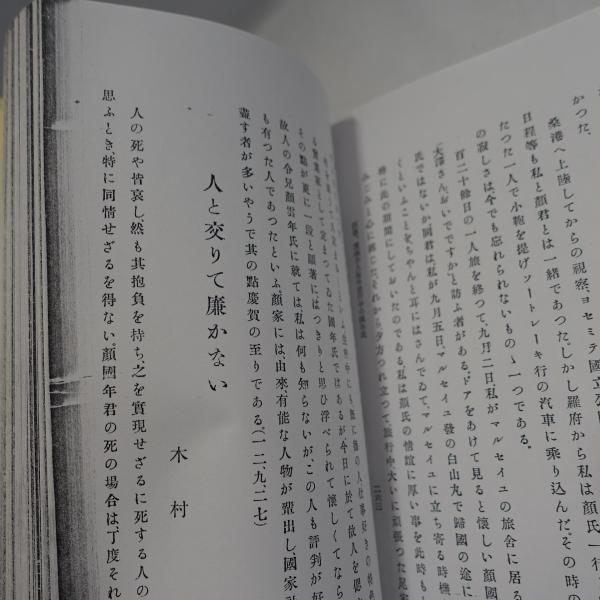 かつた。
桑港へ上陸してからの視察、ヨセミテ國立公
日程等も私と顔君とは一緒であつた。しかし羅府から私は顔氏一行
たつた一人で小鞄を提げソートレーキ行の汽車に乘り込んだ。その時の
の寂しさは、今でも忘れられないものゝ一つである。
百二十餘日の一人旅を終つて、九月二日私がマルセイユの旅舍に居る
大澤さんおいでですかと訪ふ者がある、ドアをあけて見ると懷しい顔國
氏ではないか同君は私が九月五日、マルセイユ發の白山丸で歸國の途に
くといふことをちやんと耳にはさんでゐて、マルセイユに立ち寄る時機
時に此の期間にしておいたのである私は顔氏の情誼に厚い事を此時も
二六三
その點が更に一段と顯著にはつきりと思ひ浮べられて懷しくてなら
故人の令兄顔雲年氏に就ては私は何も知らないが、この人も評判が好
も有つた人であつたといふ、顔家には、由來、有能な人物が輩出し、國家
盡す者が多いやうで其の點慶賀の至りである(一二、九、二七)
人と交りて廉かない
木村
人の死や皆哀し、然も其抱負を持ち、之を實現せざるに死する人の
思ふとき、特に同情せざるを得ない。顔國年君の死の場合は、丁度それ